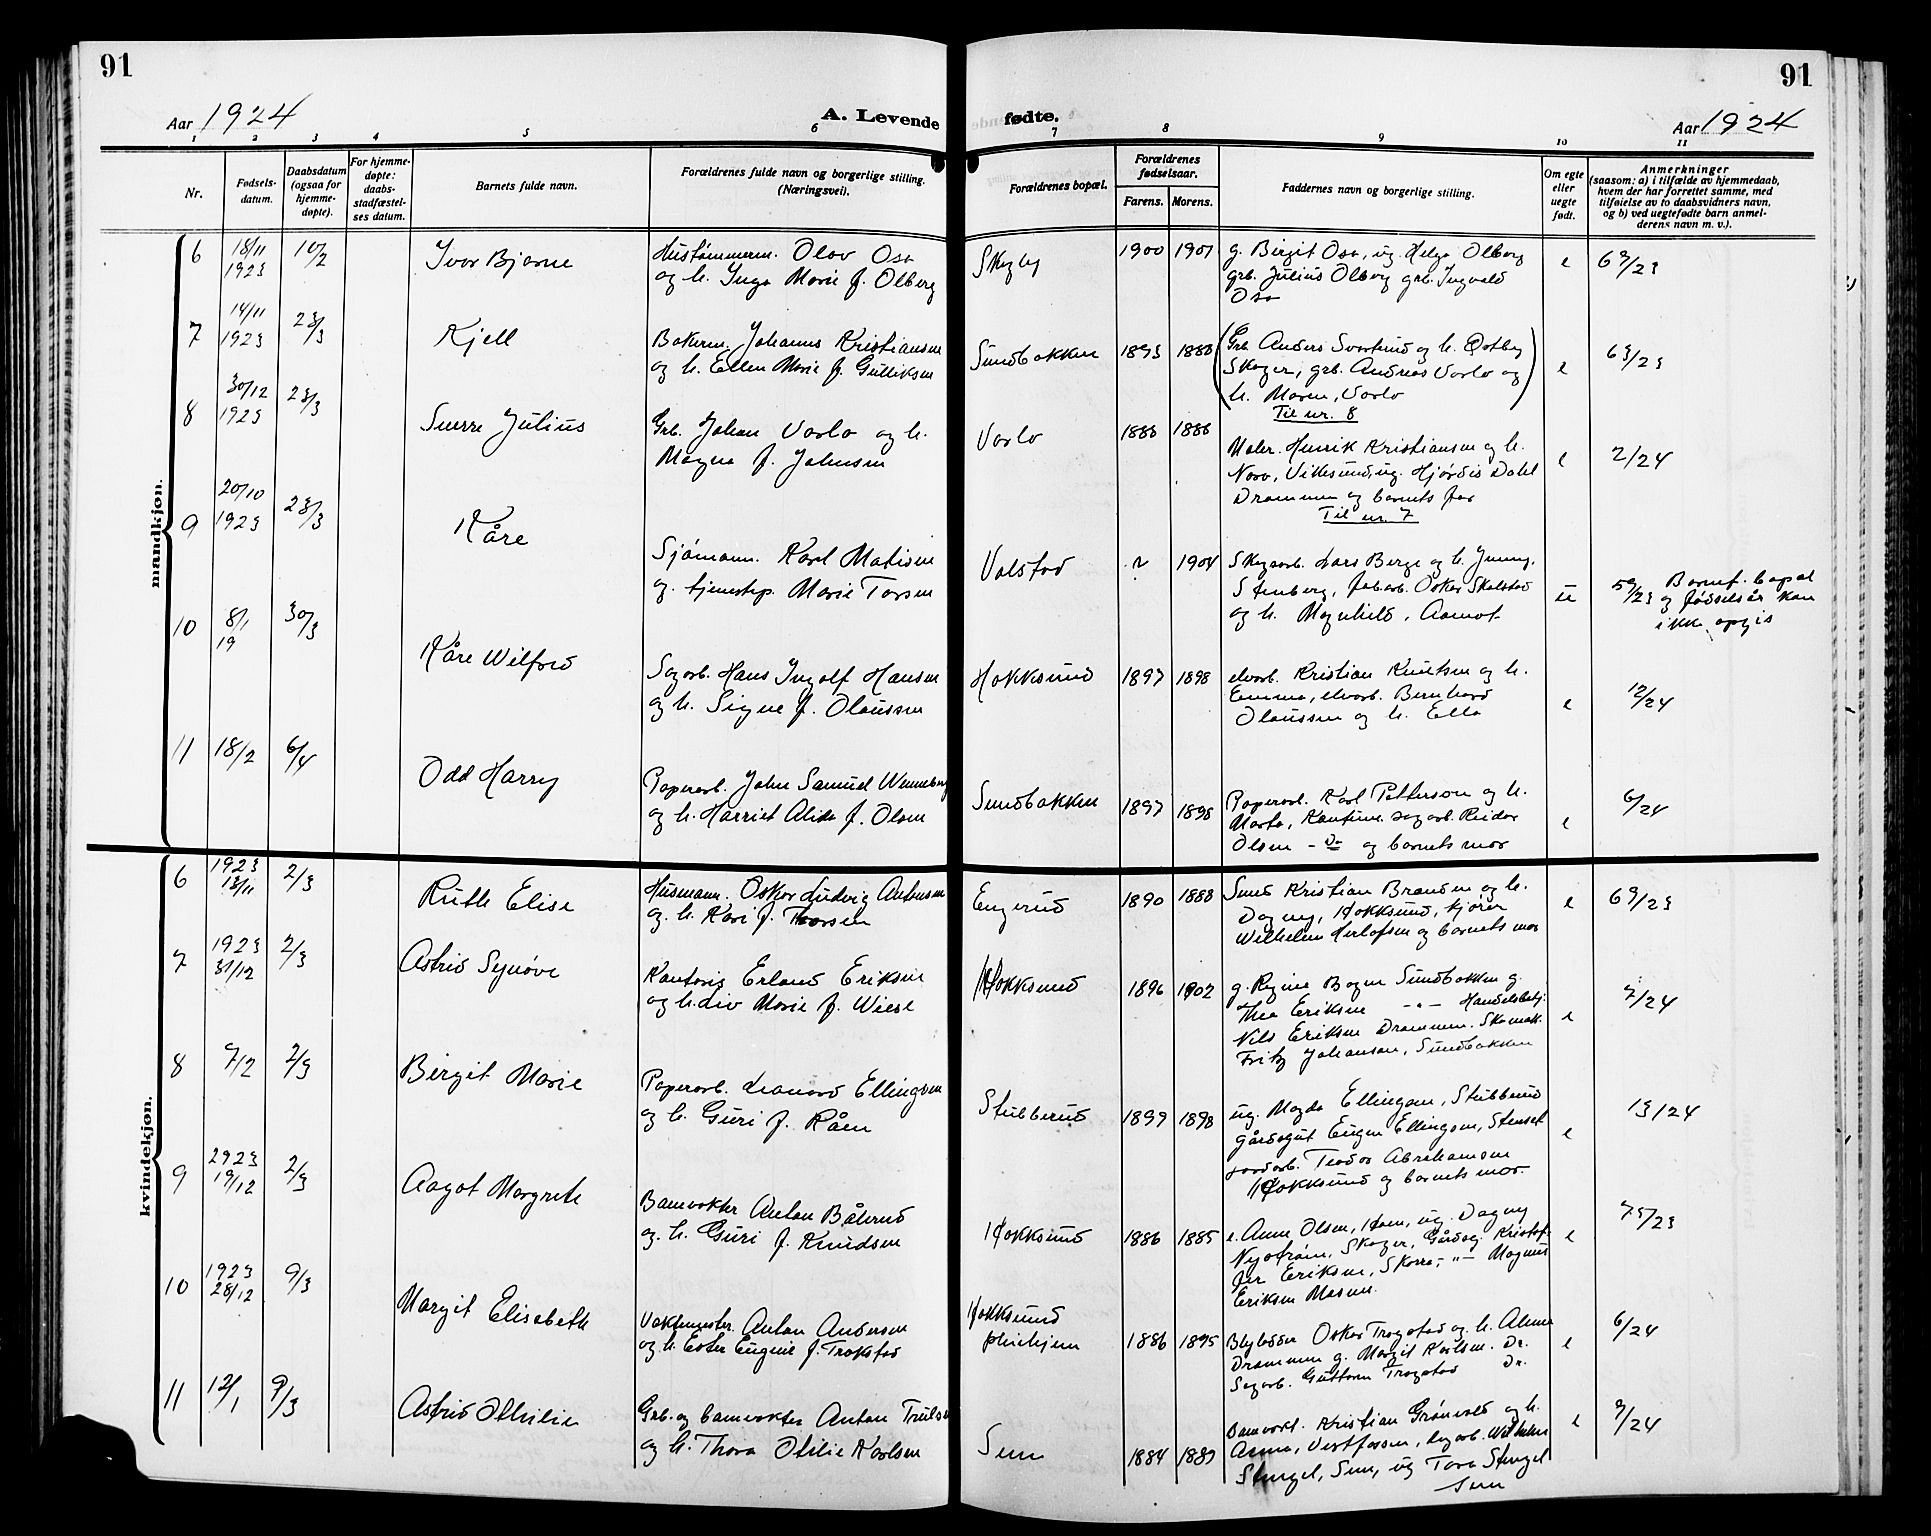 91
91
Aar 1924
A. Levende fødte.
Aar 1924
1 2 3 4 5 6 7 8 9 10 11
Nr.
Fødsels-
datum.
Daabsdatum
(ogsaa for
hjemme-
døpte).
For hjemme-
døpte:
daabs-
stadfæstel-
ses datum.
Barnets fulde navn.
Forældrenes fulde navn og borgerlige stilling.
(Næringsvei).
Forældrenes bopæl.
Forældrenes
fødselsaar.
Farens. Morens.
Faddernes navn og borgerlige stilling.
Om egte
eller
uegte
født.
Anmerkninger
(saasom: a) i tilfælde av hjemmedaab,
hvem der har forrettet samme, med
tilføielse av to daabsvidners navn,
og b) ved uegtefødte barn anmel-
derens navn m. v.).
mandkjøn.
6 18/11 1923 10/2 Ivar Bjarne
Olav Osa
og h. Inga Marie f. Olberg
1900 1901
g. Birgit Osa, ug. Helga Olberg
grb. Julius Olberg grb. Ingvald
Osa
e
7 14/11 1923 23/3 Kjell
Bakerm. Johannes Kristiansen
og h. Ellen Marie f. Gulliksen
Sundbakken 1893 1888
(Grb. Anders Svartrud og h. Østby
Skoger, grb. Andreas Varlo og
h. Maren, Varlo)
e 63/23
Til nr. 8
8 30/12 1923 23/3 Sverre Julius
Grb. Johan Varlo og h.
Magna f. Johnsen
Varlo 1888 1886
Maler. Henrik Kristiansen og h.
Nora, Vikesund, ug. Hjørdis Dahl
Drammen og barnets far
e 2/24
Til nr. 7
9 20/10 1923 23/3 Kåre
Sjömann. Karl Madisen
og tjenestep. Marie Torsen
Valstad ? 1904
Lars Berge og h. Jenny,
Stenberg, fabarb. Oskar Skalstad
og h. Magnhild, Aamot
u 59/23 Barnef. bopæl
og födselsår kan
ikke opgis
10 8/1 19 30/3 Kåre Wilfred
Sagarb. Hans Ingolf Hansen
og h. Signe f. Olaussen
Hokksund 1897 1898
elvarb. Kristian Knutsen og h.
Emma, elvarb. Bernhard
Olaussen og h. Ella
e 12/24
11 18/2 6/4 Odd Harry
Paperarb. John Samuel Wenneberg
og h. Harriet Alida f. Olsen
Sundbakken 1897 1898
Paperarb. Karl Petterson og h.
Marta, sagarb. Reidar
Olsen - Do - og barnets mor
e 6/24
kvindekjøn.
6 1923 18/11 2/3 Ruth Elise
Husmann. Oskar Ludvig Antonsen
og h. Kari f. Thorsen
Engerud 1890 1888
Smed Kristian Branden og h.
Dagny, Hokksund, kjører
Wilhelm Herlofsen og barnets mor
e 69/23
7 1923 31/12 2/3 Astrid Synöve
Kantoris Erland Eriksen
og h. Liv Marie f. Wiese
Hokksund 1896 1902
g. Regine Sundbakken g.
Thea Eriksen -"- Handelsbetj.
Nils Eriksen Drammen. Skomak.
Fritz Johansen, Sundbakken
e 7/24
8 9/2 2/3 Birgit Marie
Paperarb. Leonard Ellingsen
og h. Guri f. Råen
Stubberud 1899 1898
ug. Magda Ellingsen, Stubberud
gårdsgut Eugen Ellingsen, Stenset
jordarb. Teodor Abrahamsen
Hokksund og barnets mor
e 13/24
9 2923 19/12 2/3 Aagot Margrete
Banevokter Anton Bålerud
og h. Guri f. Knudsen
Hokksund 1886 1885
e. Anne Olsen, Hoen, ug. Dagny
Nyström, Skoger, Gårdsg. Kristof-
fer Eriksen, Skorra, -"- Magnus
Eriksen Masen.
e 75/23
10 1923 28/12 9/3 Margit Elisabeth
Vaktmester. Anton Andersen
og h. Ester Eugenie f. Trokstad
Hokksund
pleiehjem 1886 1895
Oskar Trogstad og h. Alma
Drammen g. Margit Karlsen. Dr.
Sagarb. Guttorm Trogstad Dr.
e 6/24
11 12/1 9/3 Astrid Othilie
Grb. og banevokter Anton Trulsen
og h. Thora Otilie Karlsen
Sem 1884 1889
Banevokt. Kristian Grönvold og h.
Anna, Vestfossen, Wilhelm
Stengel, Sem, ug Tora Stengel
Sem
e 9/24